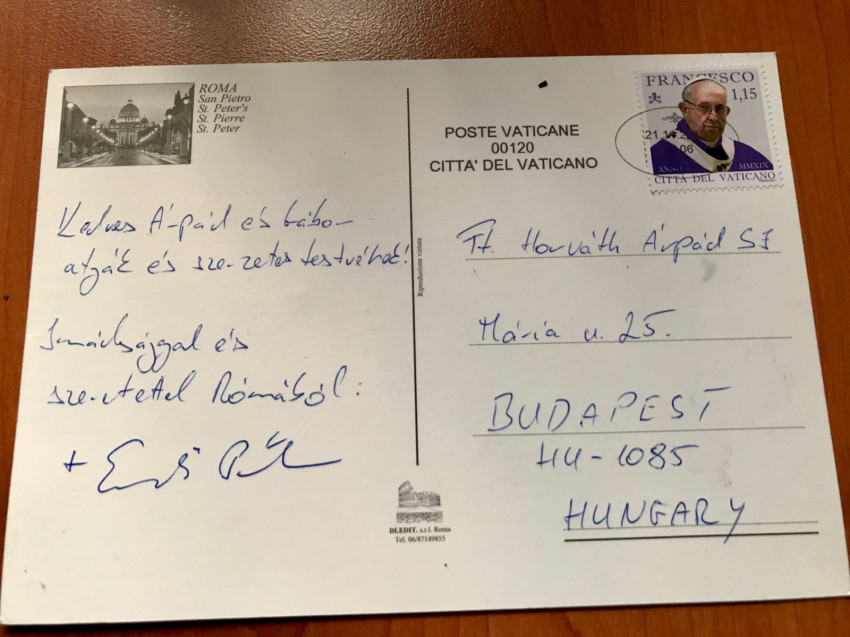 ROMA
San Pietro
St. Peter's
St. Pierre
St. Peter
POSTE VATICANE
00120
CITTA' DEL VATICANO
FRANCESCO
1,15
06
ANNO MMXIX
CITTÀ DEL VATICANO
Kedves Árpád és
és szerzetes testvérek!
Imádsággal és
szeretettel Rómából:
+
Riproduzione vietata
Ft. Horváth Árpád SJ
Mária u. 25.
BUDAPEST
HU-1085
HUNGARY
DI.EDIT. s.r.l. Roma
Tel. 06/87149855